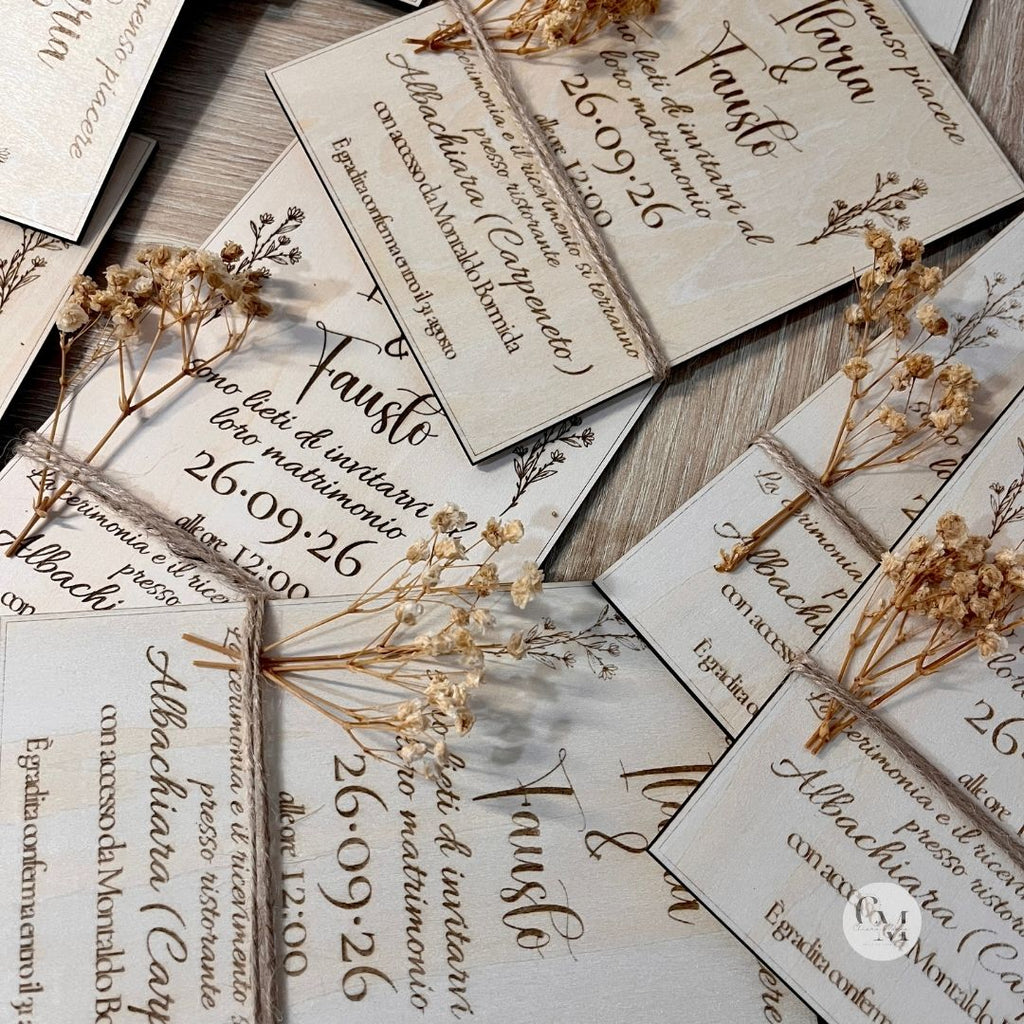 menso piacere
Ilaria
&
Fausto
sono lieti di invitarvi al
loro matrimonio
26·09·26
alle ore 12:00
La cerimonia e il ricevimento si terranno
presso ristorante
Albachiara (Carpeneto)
con accesso da Montaldo Bormida
È gradita conferma entro il 31 agosto
menso piacere
aria
&
Fausto
sono lieti di invitarvi al
loro matrimonio
26·09·26
alle ore 12:00
La cerimonia e il rice
presso
Albachi
con
Ilaria
&
Fausto
lieti di invitarvi
loro matrimonio
26·09·26
alle ore 12:00
La cerimonia e il ricevimento s
presso ristorante
Albachiara (Carp
con accesso da Montaldo Bo
È gradita conferma entro il 31 a
La cerimonia
Albachi
con access
È gradita
26
alle ore
La cerimonia e il ricevim
presso ristor
Albachiara (Ca
con acc
Montaldo
È gradita conferm
CM